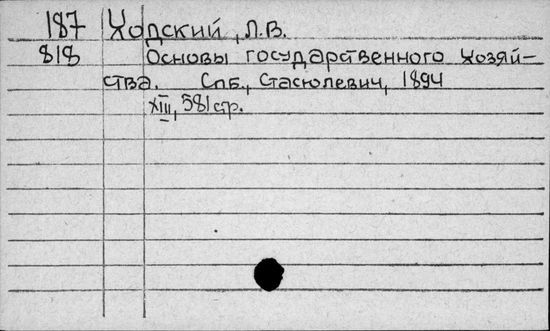 187 Ходский, Л.В.
818 Основы государственного хозяй-
ства. Спб., Стасюлевич, 1894
XIII, 581 стр.